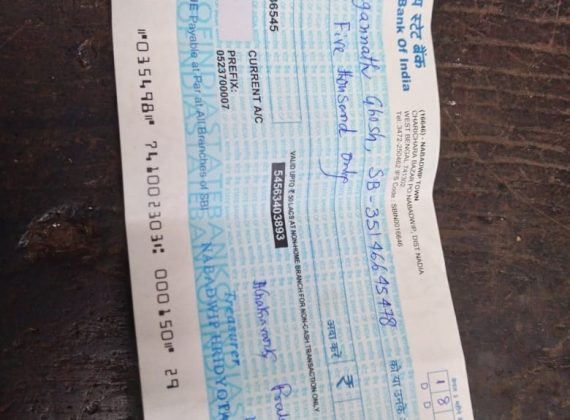 स्टेट बैंक
Bank Of India
(16646) - NABADWIP TOWN
CHARICHARA BAZAR PO NABADWIP, DIST NADIA
WEST BENGAL 741302
Tel: 3472-250402 IFS Code : SBIN0016646
1 8
D D
gannath Ghosh, SB - 35146645478 को या उनके
Five thousand only
अदा करें ₹
06545
CURRENT A/C
PREFIX:
0523700007
VALID UPTO ₹ 50 LACS AT NON-HOME BRANCH FOR NON-CASH TRANSACTION ONLY
54563403893
Payable at Par at All Branches of SBI
STATE BANK
Treasurer
NABADWIP HRIDYO
⑈035498⑈ 741002303⑆ 000150⑈ 29